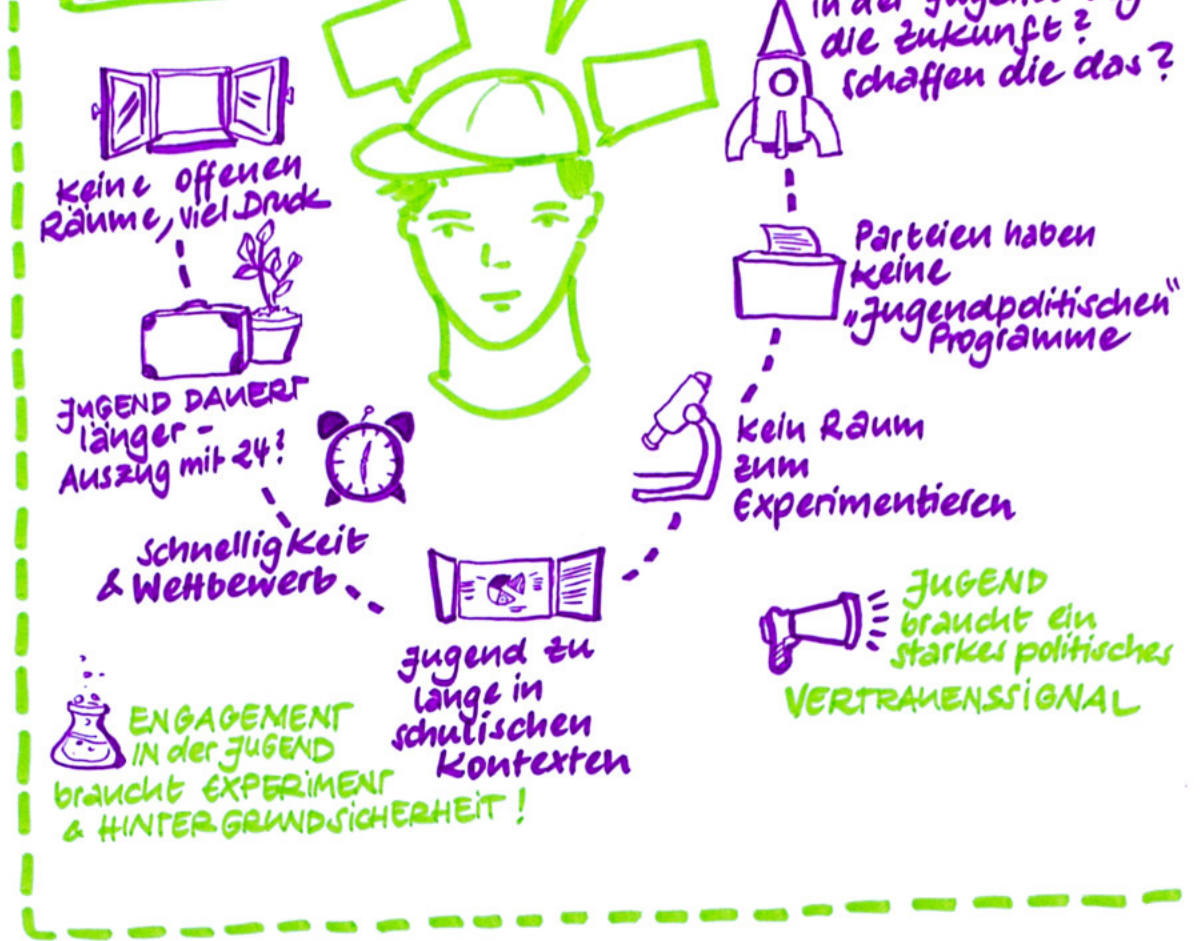 in der Jugend
die Zukunft?
schaffen die das?
Keine offenen
Räume, viel Druck
Parteien haben
keine
„Jugendpolitischen“
Programme
JUGEND DAUERT
länger -
Auszug mit 24?
kein Raum
zum
Experimentieren
Schnelligkeit
& Wettbewerb
JUGEND
braucht ein
starkes politisches
VERTRAUENSSIGNAL
Jugend zu
lange in
schulischen
Kontexten
ENGAGEMENT
IN der JUGEND
braucht EXPERIMENT
& HINTERGRUNDSICHERHEIT!